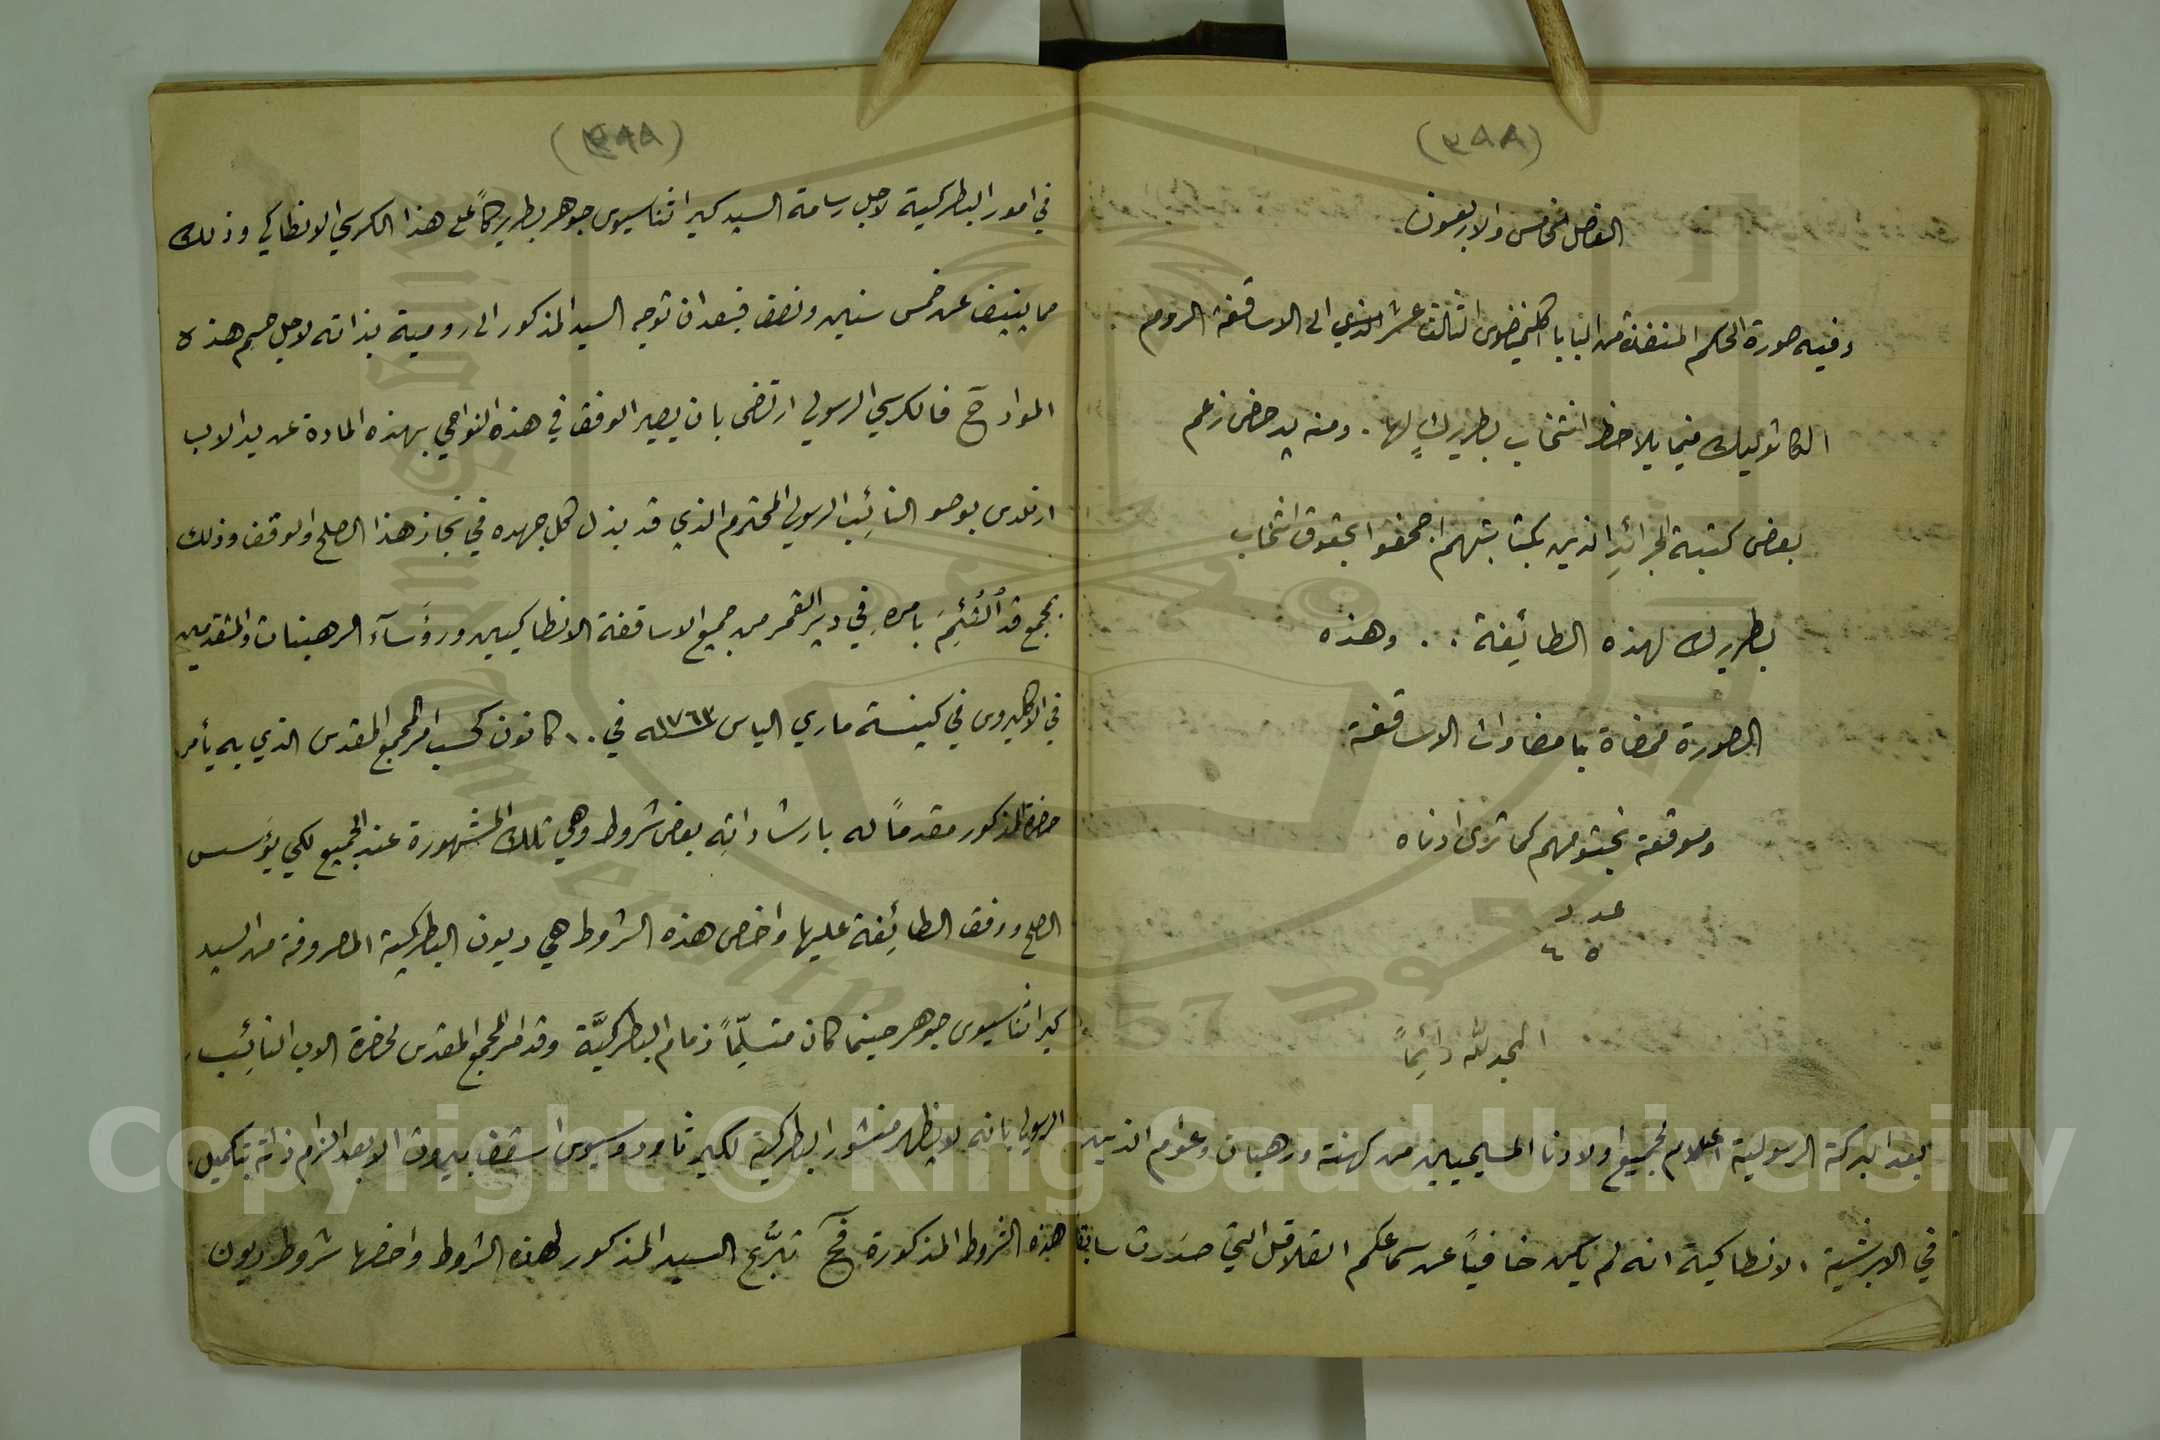 (٣٩٨)
الفصل الخامس والاربعون
وفيه صورة الحكم المنفذة من البابا اكليمنضوس الثالث عشر الى الاساقفة الروم
الكاثوليك فيما يلاحظ انتخاب بطريرك لها . ومنه يدحض زعم
بعض كتبة الجرائد الذين بكتابتهم اجحفوا بحقوق انتخاب
بطريرك لهذه الطائفة . . وهذه
الصورة ممضاة بامضاوات الاساقفة
وموقعة بختومهم كما ترى ادناه
عدد
٤٥
المجد لله دائماً
بعد البركة الرسولية اعلام لجميع اولادنا المسيحيين من كهنة ورهبان وعوام الذين
في الابرشية الانطاكية انه لم يكن خافياً عن سماعكم القلاقل التي صدرت سابقا
(٣٩٩)
في امور البطركية لاجل رسامة السيد كير اثناسيوس جوهر بطريركاً على هذا الكرسي الانطاكي وذلك
مما ينيف عن خمس سنين ونصف فبعد ان توجه السيد المذكور الى رومية بذاته لاجل حسم هذه
المواد فالكرسي الرسولي ارتضى بان يصير الوفق في هذه النواحي بهذه المادة عن يد الاب
ارنلدس بوصو النائب الرسولي المحترم الذي قد بذل كل جهده في نجاز هذا الصلح والوفق وذلك
بمجمع قد ٱلتُئِمَ بامره في دير القمر من جميع الاساقفة الانطاكيين ورؤسآء الرهبنات والمتقدمين
في الاكليروس في كنيسة ماري الياس ١٧٦٣ في ١٠ كانون كحسب امر المجمع المقدس الذي به يأمر
حضرة المذكور مقدماً له بارشاداته بعض شروط وهي تلك المشهورة عند الجميع لكي يؤسس
الصلح ووفق الطائفة عليها واخص هذه الشروط هي ديون البطركية المصروفة من السيد
كير اثناسيوس جوهر حينما كان متسلّماً زمام البطركيَّة وقد امر المجمع المقدس لحضرة الاب النائب
الرسولي بانه لا يظهر منشور البطركية لكير ثاودوسيوس اسقف بيروت الا بعد الزام ذاته بتكميل
هذه الشروط المذكورة تبرَّع السيد المذكور لهذه الشروط واخصها شروط ديون
Copyright © King Saud University